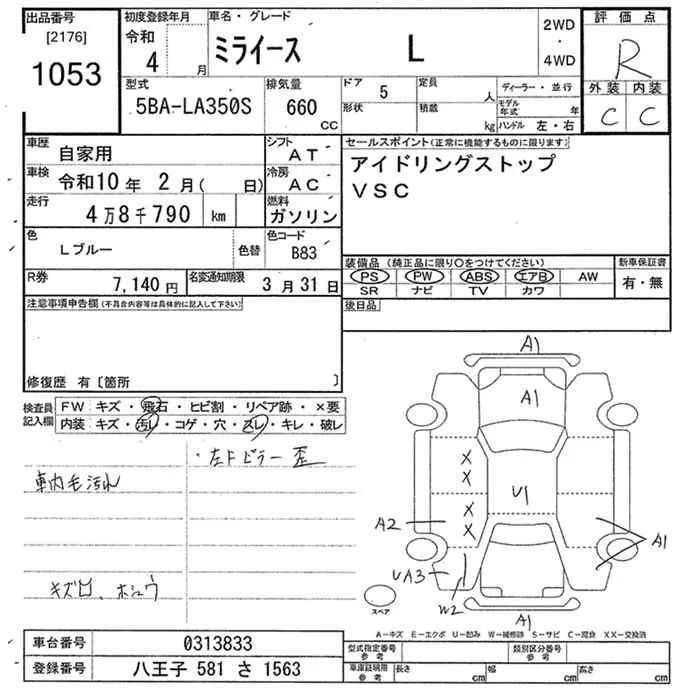 出品番号
[2176]
1053
初度登録年月
令和
4 月
車名・グレード
ミライース L
2WD
・
4WD
評価点
R
外装 内装
C C
型式
5BA-LA350S
排気量
660
CC
ドア 5
形状
定員 人
積載 kg
ディーラー・並行
モデル年式 年
ハンドル 左・右
車歴 自家用
シフト AT
車検 令和10年 2月( 日)
冷房 AC
走行 4万8千790 km
燃料 ガソリン
色 Lブルー 色替
色コード B83
R券 7,140円
名変通知期限 3月31日
セールスポイント(正常に機能するものに限ります)
アイドリングストップ
VSC
装備品(純正品に限り○をつけてください)
PS PW ABS エアB AW
SR ナビ TV カワ
新車保証書
有・無
後日品
注意事項申告欄(不具合内容等は具体的に記入して下さい)
修復歴 有〔箇所 〕
検査員記入欄
FW キズ・飛石・ヒビ割・リペア跡・×要
内装 キズ・汚レ・コゲ・穴・スレ・キレ・破レ
・左Fピラー歪
車内毛汚れ
キズ凹、ホシュウ
A1
A1
X
X
U1
X
X
A2
A1
UA3
W2
A1
スペア
A-キズ E-エクボ U-凹み W-補修跡 S-サビ C-腐食 XX-交換済
車台番号 0313833
登録番号 八王子 581 さ 1563
型式指定番号
参考
類別区分番号
参考
車庫証明用
参考
長さ cm
幅 cm
高さ cm